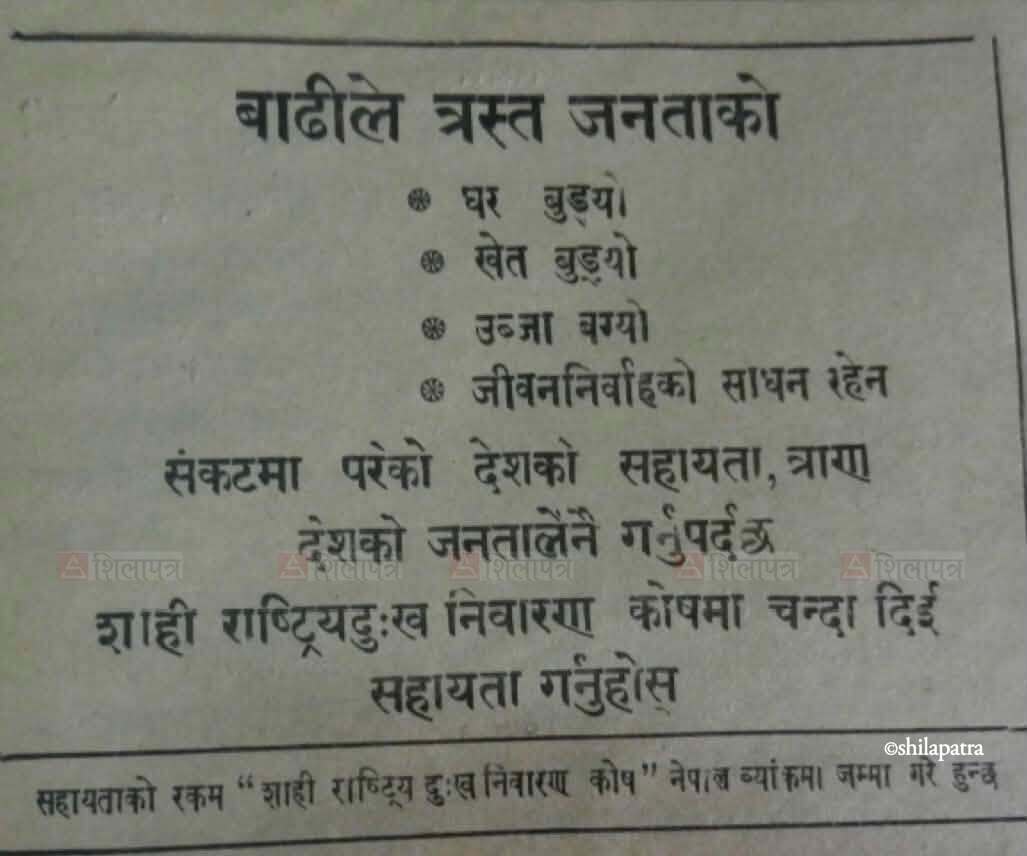 बाढीले त्रस्त जनताको
घर बुड्यो
खेत बुड्यो
उब्जा बग्यो
जीवननिर्वाहको साधन रहेन
संकटमा परेको देशको सहायता, त्राण
देशको जनतालेनै गर्नुपर्दछ
शिलापत्र शिलापत्र शिलापत्र शिलापत्र शिलापत्र
शाही राष्ट्रियदुःख निवारण कोषमा चन्दा दिई
सहायता गर्नुहोस्
©shilapatra
सहायताको रकम “शाही राष्ट्रिय दुःख निवारण कोष” नेपाल ब्यांकमा जम्मा गरे हुन्छ